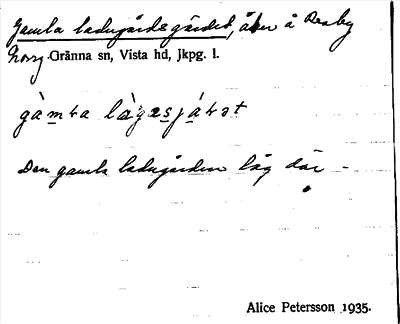 Gamla ladugårdsgärdet, åker å Reaby
Norg. Gränna sn, Vista hd, Jkpg. l.
gàmɫa làgasjáɫət
Den gamla ladugården låg där –
Alice Petersson 1935.